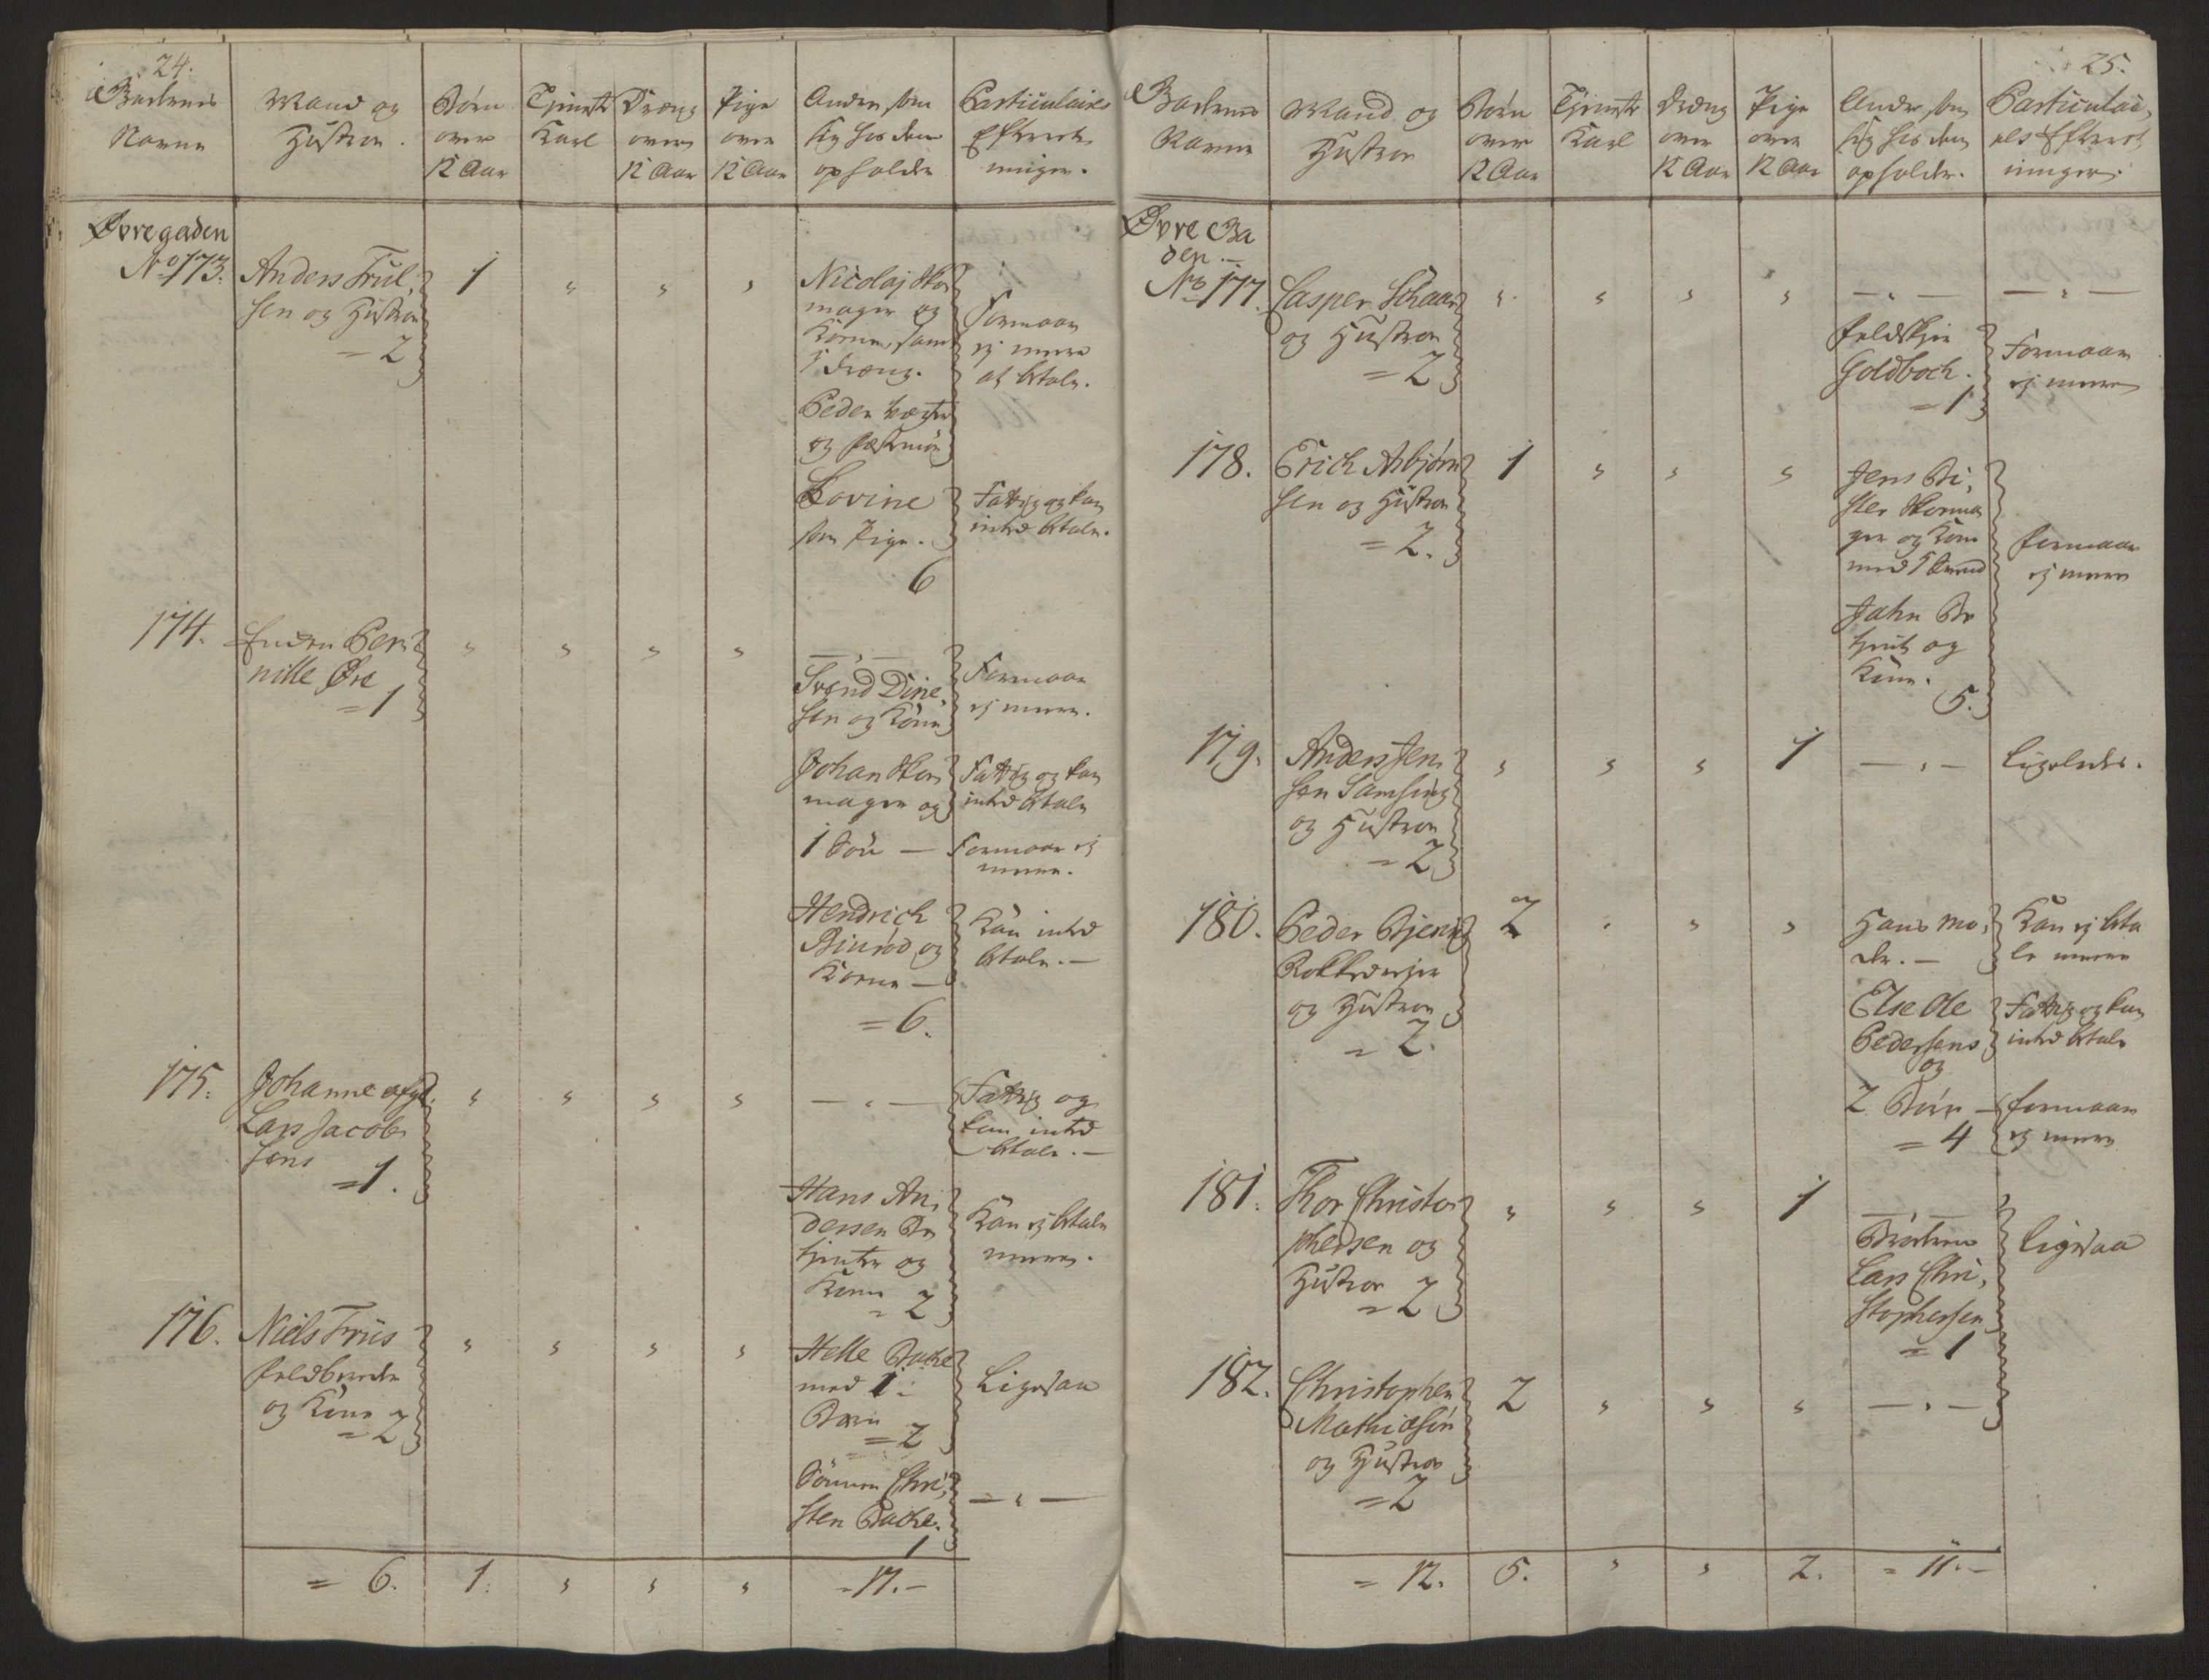 24.
Gadernes
Navne
Mand og
Hustrue.
Børn
over
12 Aar
Tjeneste
Karl
Dreng
over
12 Aar
Pige
over
12 Aar
Andre, som
sig hos dem
opholder
Particulaires
Efterret
ninger.
Øvregaden
No 173.
Anders Trul,
sen og Hustrue
= 2
1
Nicolaj Sko
mager og
Kone, samt
1 dreng.
Formaar
ej mere
at betale.
Peder
og
Lovine
en Pige.
6
Fattig og kan
intet betale.
174.
Enken Per
nille Øre
= 1
Svend Dine,
sen og Kone
Formaar
ej mere.
Johan Sko
mager og
Fattig og kan
intet betale
1 Søn —
Formaar ej
mere.
Hendrich
og
Kone —
= 6.
Kan intet
betale. —
175.
Johanne afg.
Lars Jacob
sens
= 1.
Fattig og
kan intet
betale. —
Hans An
dersen Be
tjent og
Kone
= 2
Kan ej betale
mere.
176.
Niels Friis
og Kone
= 2
Helle Bache
med 1
Barn
= 2
Ligesaa
Sønnen Chri,
sten Bache.
1
= 6. 1. = 17. —
25.
Gadernes
Navne
Mand og
Hustrue
Børn
over
12 Aar
Tjeneste
Karl
Dreng
over
12 Aar
Pige
over
12 Aar
Andre, som
sig hos dem
opholder.
Particulai,
res Efterret
ninger.
Øvre Ga
den. —
No 177.
Casper Schaar
og Hustrue
= 2
Feldskjer
Goldbach.
= 1
Formaar
ej mere
178.
Erich Asbjørn
sen og Hustrue
= 2.
1
Jens
Skoma
ger og Kone
med 1
Formaar
ej mere
Jahn Be
tjent og
Kone.
5.
179.
Anders Jen
sen Samsing
og Hustrue
= 2
1
Ligeledes.
180.
Peder
Rokkedreier
og Hustrue
= 2.
2
Hans Mo,
der. —
Kan ej beta
le mere
Else Ole
Pedersens
og
Fattig og kan
intet betale
2 Børn —
= 4
formaar
ej mere
181.
Thor Christo
phersen og
Hustrue
= 2
1
Broderen
Lars Chri,
stophersen
= 1
Ligesaa
182.
Christopher
Mathiesen
og Hustrue
= 2
2
= 12. 5. 2. = 11. —